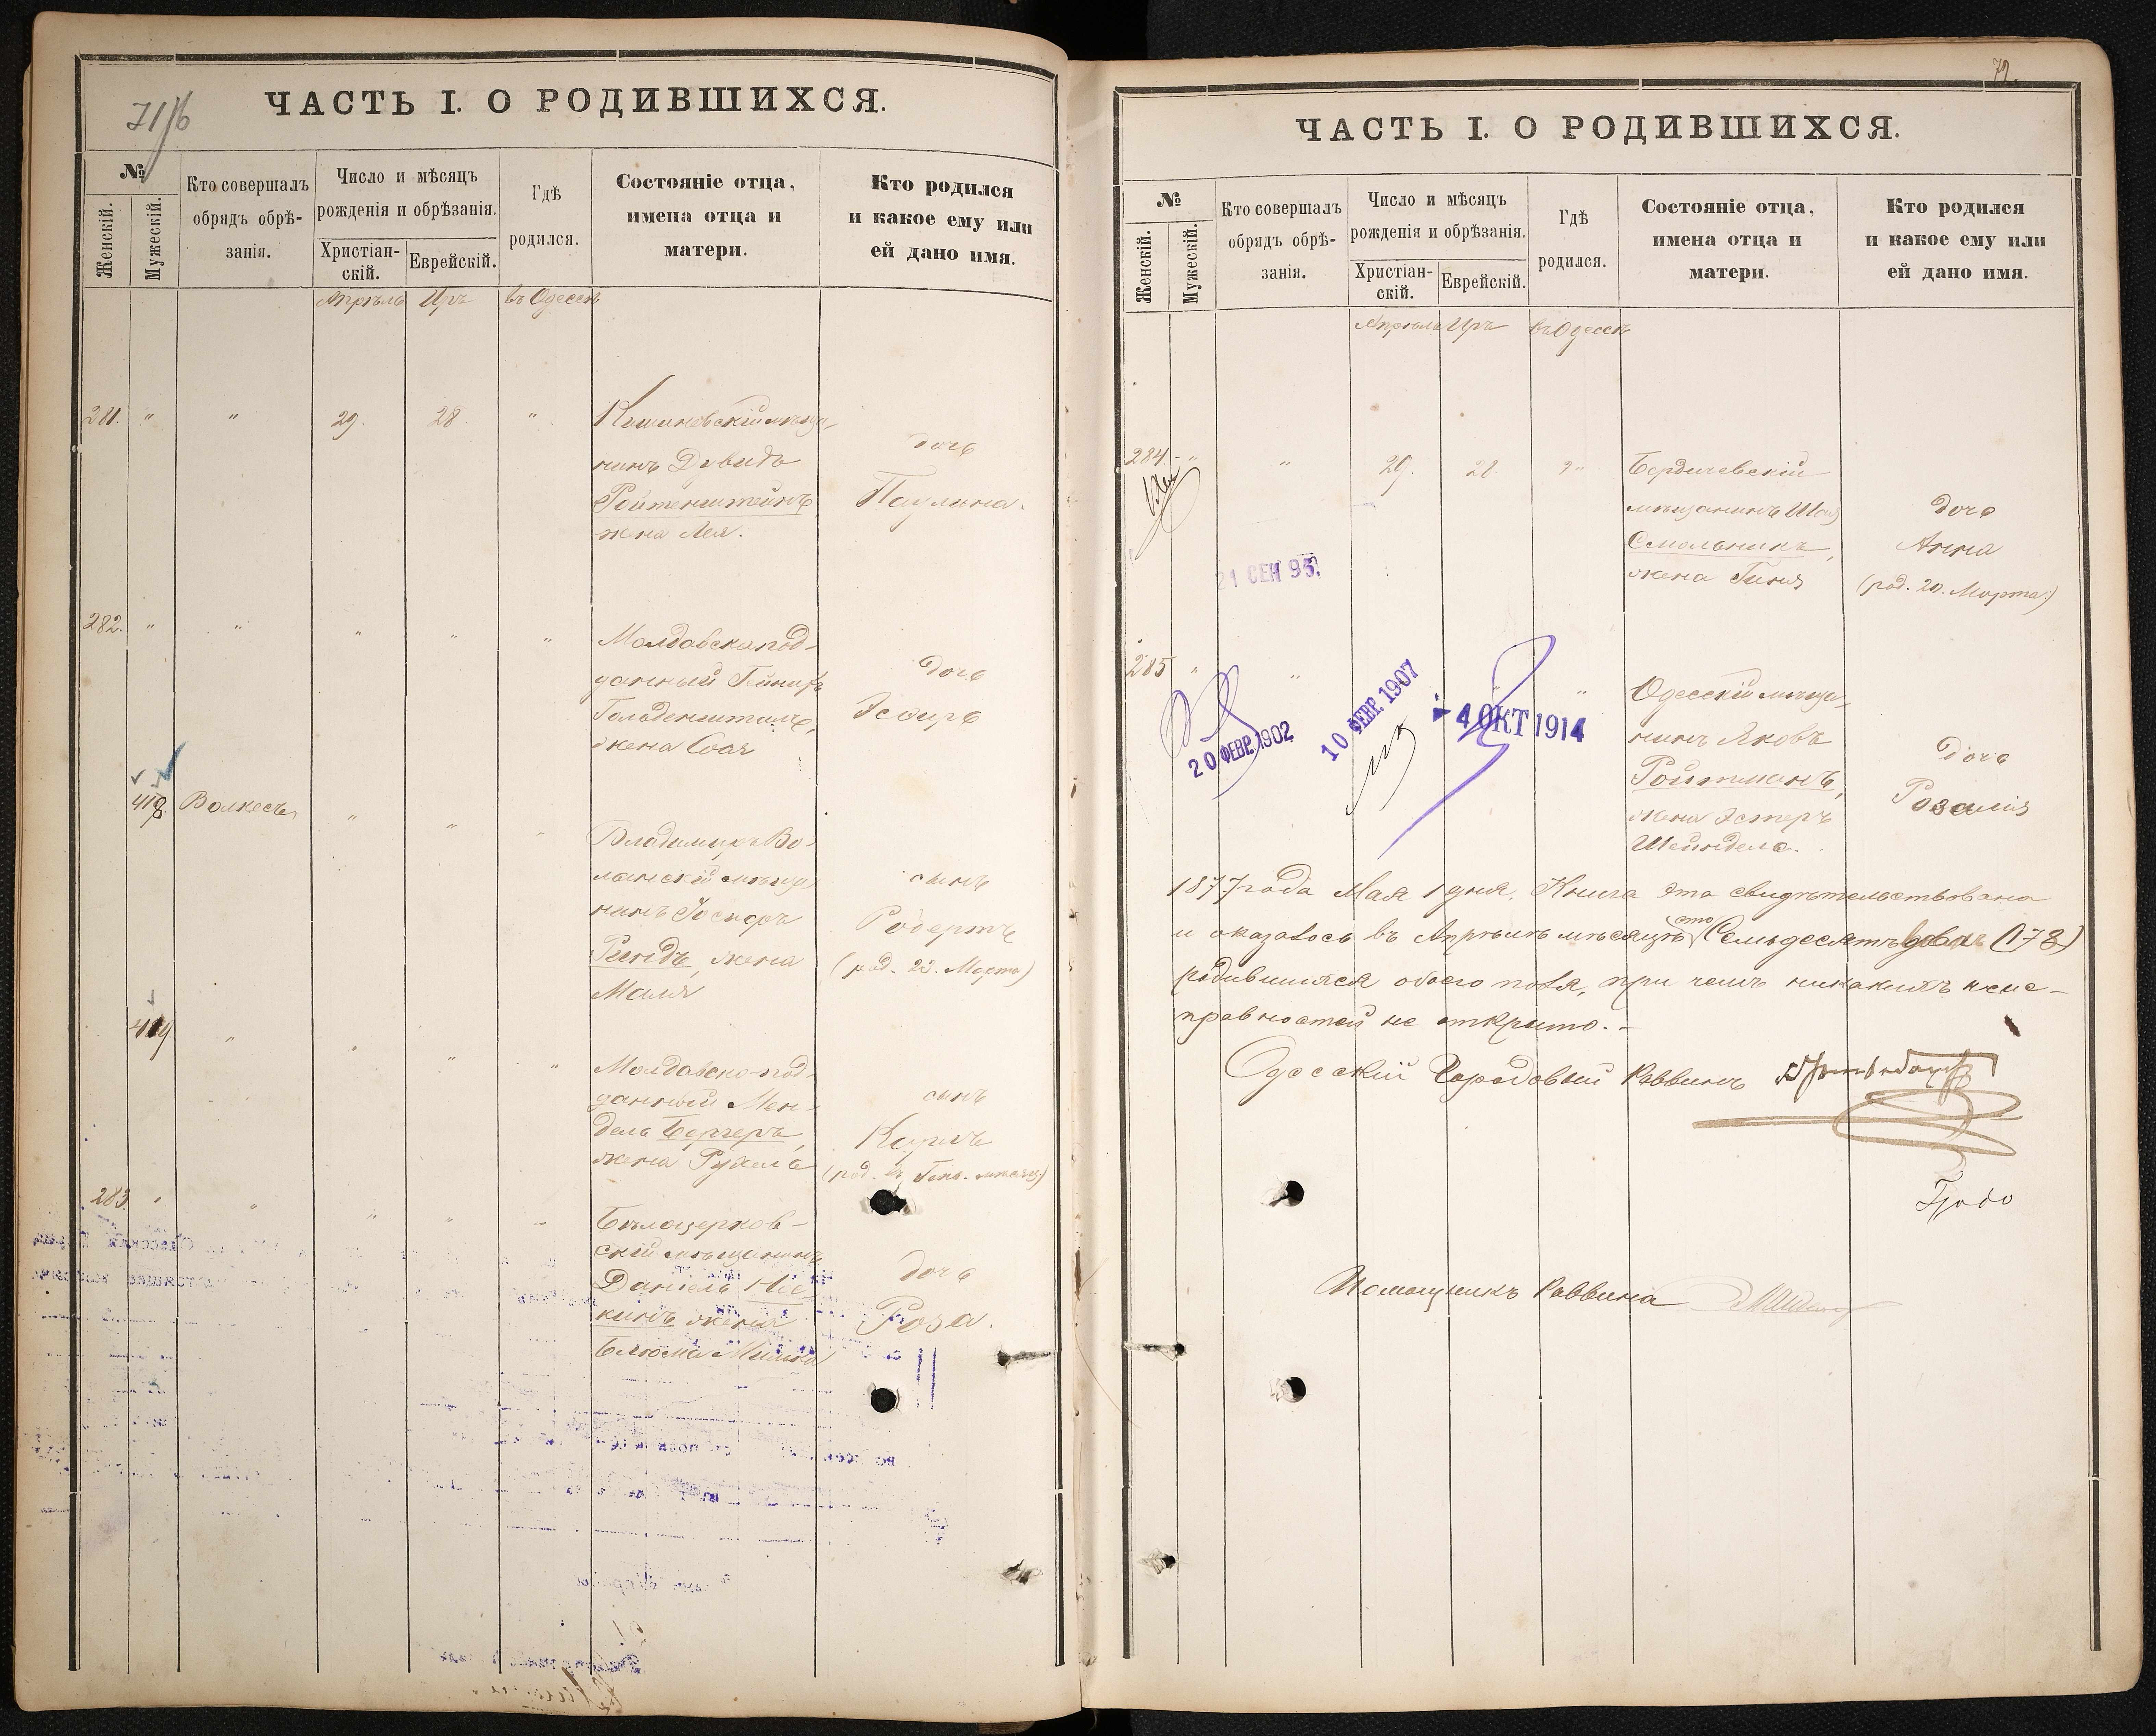 71/6
ЧАСТЬ I. О РОДИВШИХСЯ.
№
Женскій.
Мужескій.
Кто совершалъ
обрядъ обрѣ-
занія.
Число и мѣсяцъ
рожденія и обрѣзанія.
Христіан-
скій.
Еврейскій.
Гдѣ
родился.
Состояніе отца,
имена отца и
матери.
Кто родился
и какое ему или
ей дано имя.
Апрѣль Иръ въ Одессѣ
281. " " 29. 28. "
Кишиновскій мѣща-
нинъ Давидъ
Ройтенштейнъ
жена Лея.
дочь
Паулина.
282. " " " " "
Молдавскопод-
данный
жена
дочь
Эсѳирь
418 Волкесъ " " "
Владимиръ Во-
лынскій мѣща
нинъ Іосифъ
жена
Маля
сынъ
Робертъ
(род. 22. Марта)
419 " " " "
Молдавско-под-
данный Мен-
дель Бергеръ,
жена Рухель
сынъ
Карлъ
283. " " " " "
Бѣлоцерков-
скій мѣщанинъ
Даніель
жена
Блюма
дочь
Роза.
72.
ЧАСТЬ I. О РОДИВШИХСЯ.
№
Женскій.
Мужескій.
Кто совершалъ
обрядъ обрѣ-
занія.
Число и мѣсяцъ
рожденія и обрѣзанія.
Христіан-
скій.
Еврейскій.
Гдѣ
родился.
Состояніе отца,
имена отца и
матери.
Кто родился
и какое ему или
ей дано имя.
Апрѣль Иръ въ Одессѣ
284. " " 29. "
Бердичевскій
мѣщанинъ Шая
Смольникъ,
жена Гиня
дочь
Анна
(род. 20. Марта)
21 СЕН 95.
285 " " " "
20 ФЕВР. 1902
10 ФЕВР. 1907
4 ОКТ 1914
Одесскій мѣща-
нинъ Яковъ
Ройтманъ,
жена Эстеръ
Шейндель.
дочь
Розалія
1877 года Мая 1 дня. Книга эта свидѣтельствована
и оказалось въ Апрѣлѣ мѣсяцѣ сто Семьдесятъ два (172)
родившихся обоего пола, при чемъ никакихъ неис-
правностей не открыто. -
Одесскій Городовый Раввинъ
Помощникъ Раввина